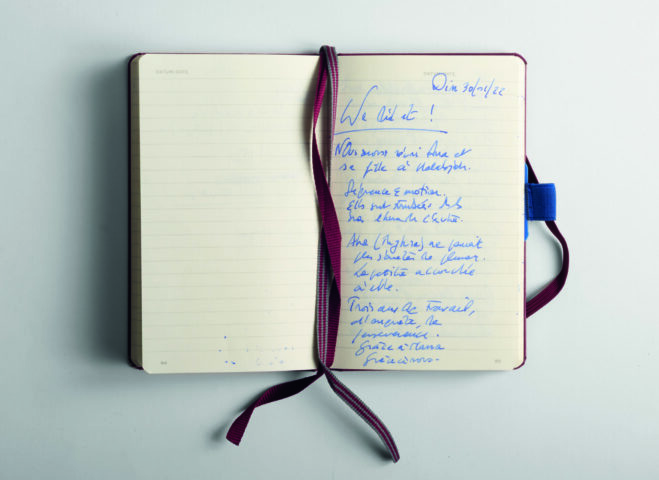 DATUM/DATE
DATUM/DATE
Dim 30/01/22
We did it !
Nous avons réuni Ana et
sa fille à
Séquence émotion.
Elles sont tombées ds les
bras l'une de l'autre.
Ana ne pouvait
pas s'arrêter de pleurer.
La petite accrochée
à elle.
Trois ans de travail,
d'enquête, de
persévérance.
Grâce à
Grâce à nous.